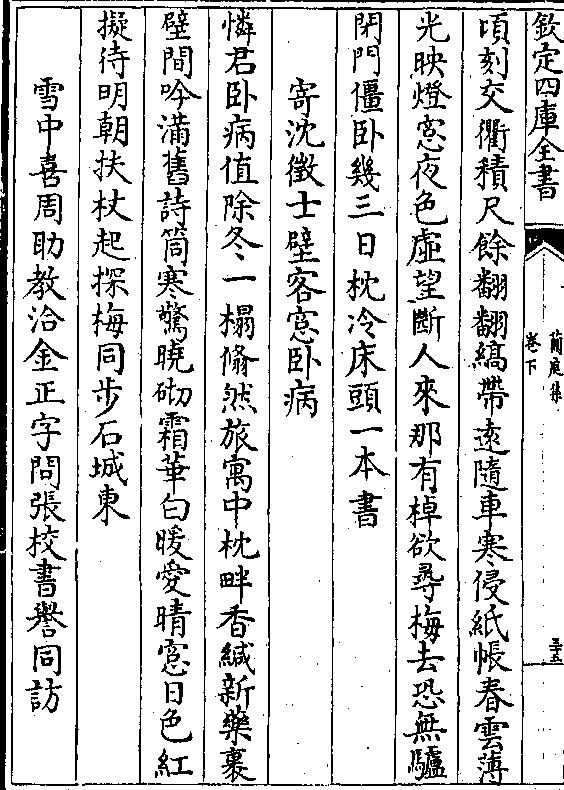 欽定四庫全書
蘭庭集
卷下
三十五
頃刻交衢積尺餘翩翩縞帶遠隨車寒侵紙帳春雲薄
光映燈窓夜色虛望斷人來那有棹欲尋梅去恐無驢
閉門僵卧幾三日枕冷床頭一本書
寄沈徵士壁客窓卧病
憐君卧病值除冬一榻翛然旅寓中枕畔香緘新藥裹
壁間吟滿舊詩筒寒驚曉砌霜華白暖愛晴窓日色紅
擬待明朝扶杖起探梅同步石城東
雪中喜周助教洽金正字問張校書譽同訪